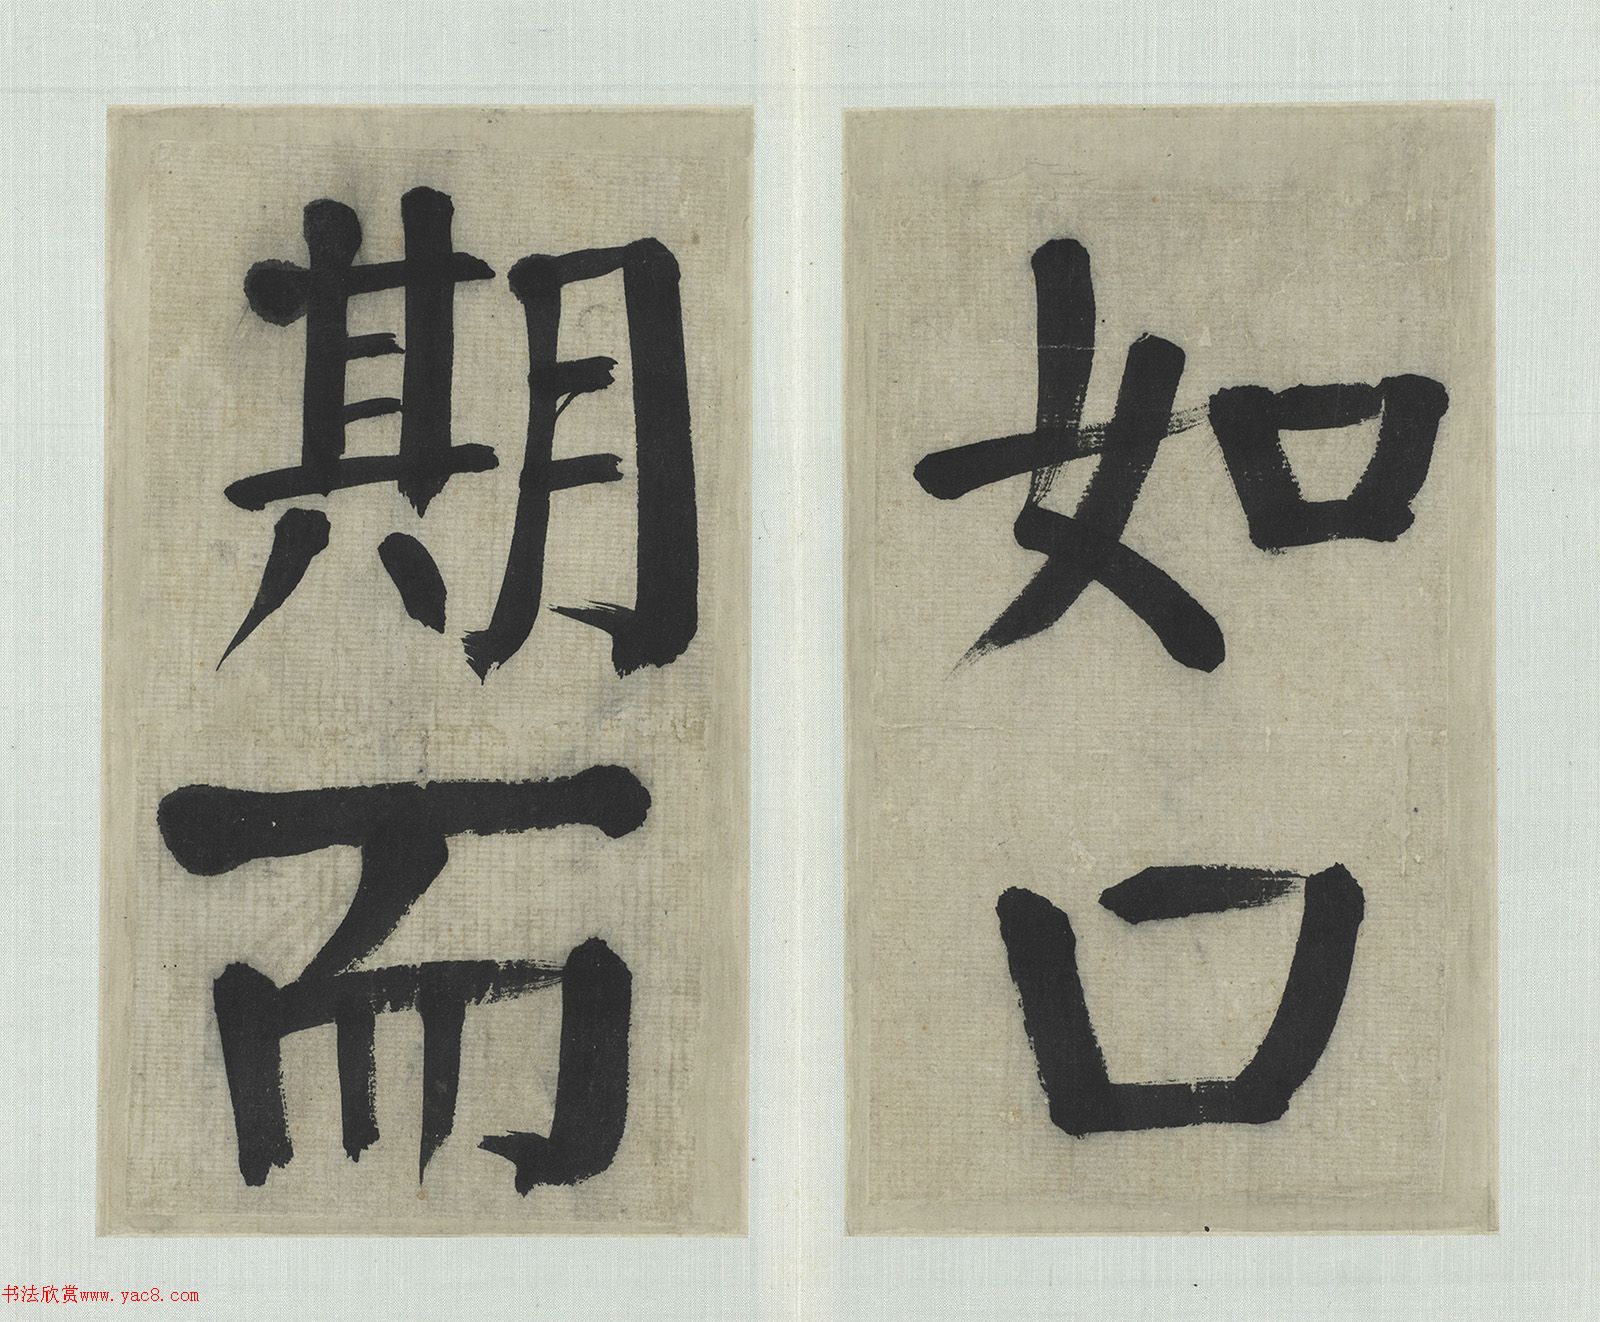 如口
期而
书法欣赏www.yac8.com